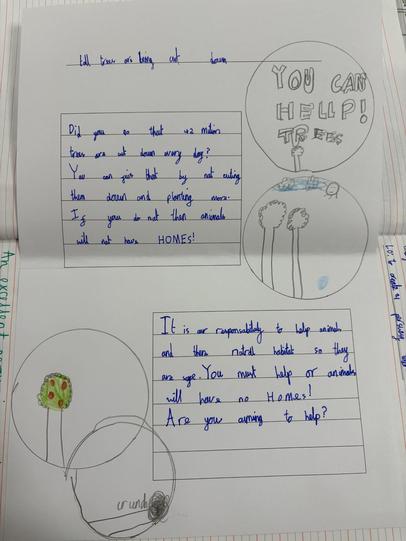 tall trees are being cut down
YOU CAN
HELLP!
TREES
Did you no that 42 milion
trees are cut down every day?
You can fix that by not cuting
them down and planting more.
If you do not than animals
will not have HOMES!
It is our responsability to help animals
and there natral habitat so they
are safe. You must help or animals
will have no Homes!
Are you aiming to help?
crunch
An excellent